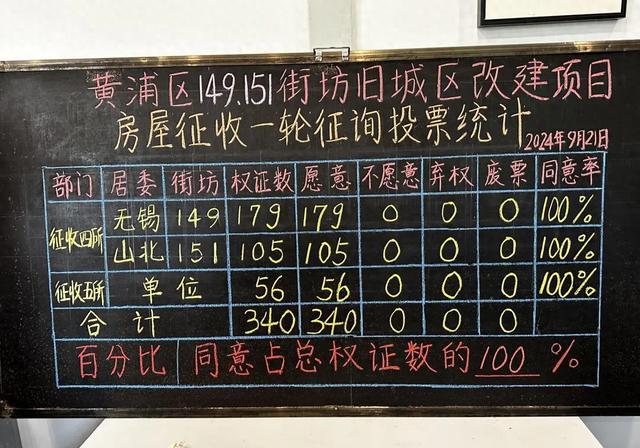 黄浦区149.151街坊旧城区改建项目
房屋征收一轮征询投票统计
2024年9月21日
部门 居委 街坊 权证数 愿意 不愿意 弃权 废票 同意率
征收四所 无锡 149 179 179 0 0 0 100%
山北 151 105 105 0 0 0 100%
征收五所 单位 56 56 0 0 0 100%
合计 340 340 0 0 0
百分比 同意占总权证数的100%